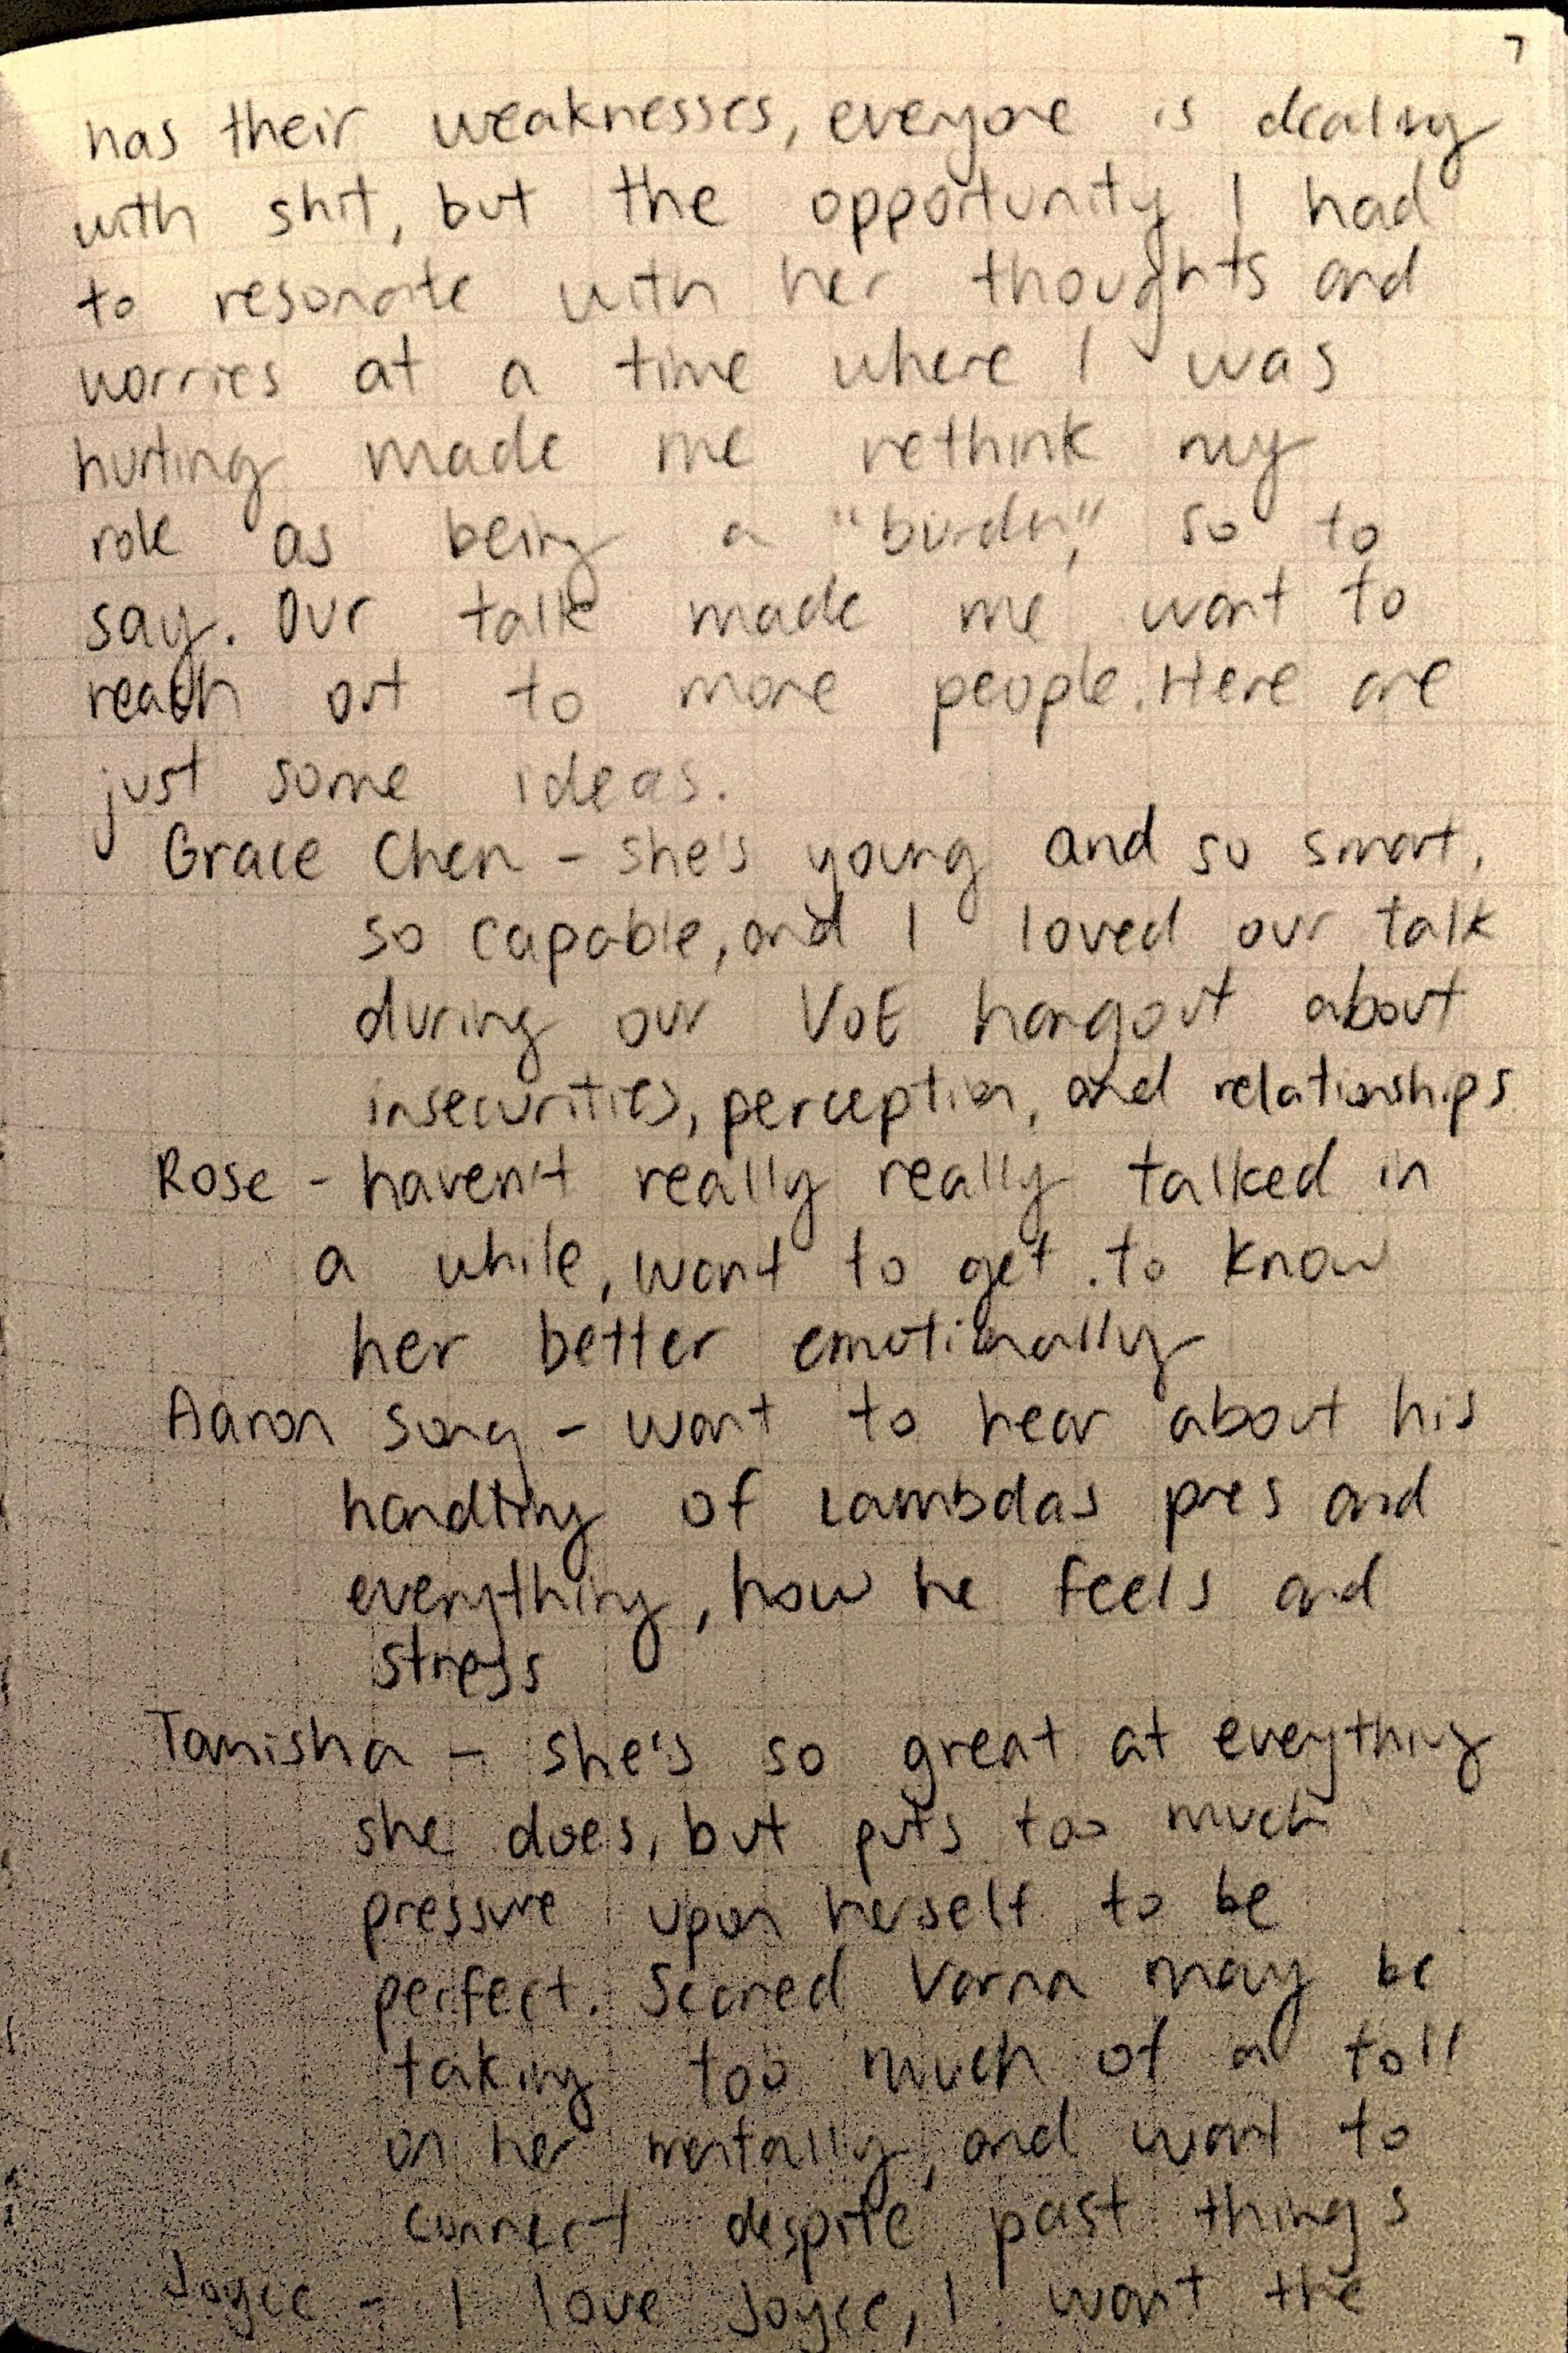 7
has their weaknesses, everyone is dealing
with shit, but the opportunity I had
to resonate with her thoughts and
worries at a time where I was
hurting made me rethink my
role as being a "burden," so to
say. Our talk made me want to
reach out to more people. Here are
just some ideas.
Grace Chen - she's young and so smart,
so capable, and I loved our talk
during our VoE hangout about
insecurities, perception, and relationships
Rose - haven't really really talked in
a while, want to get to know
her better emotionally
Aaron Song - want to hear about his
handling of Lambdas pres and
everything, how he feels and
stress
Tanisha - she's so great at everything
she does, but puts too much
pressure upon herself to be
perfect. Scared Varna may be
taking too much of a toll
on her mentally, and want to
connect despite past things
Joyce - I love Joyce, I want the